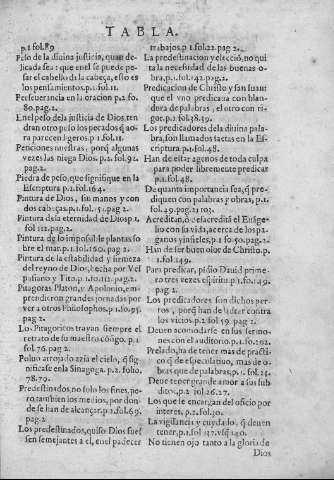 TABLA.
p.1 fol.89
Peso de la diuina justicia, quan delicada sea: que en el se puede pesar el cabello de la cabeça, esto es los pensamientos.p.1.fol.11.
Perseuerancia en la oracion p.2 fo. 80.pag 2.
En el peso de la justicia de Dios tendran otro peso los pecados q̃ aora parecen ligeros p 1 fol.11.
Peticiones nuestras, porq̃ algunas vezes las niega Dios. p.1.fol.92. pag 2.
Piedra de peso, que signifique en la Escriptura p.2.fol.164.
Pintura de Dios, sin manos y con dos cabeças, p.1.fol.55.pag 2.
Pintura de la eternidad de Dios p 1. fol 112.pag 2.
Pintura de lo imposible plantas sobre el mar. p.1.fol.160. pag 2.
Pintura de la estabilidad y firmeza del reyno de Dios, hecha por Vespasiano y Tito, p.1.fo.112. pag 2.
Pitagoras Platon, y Apolonio, emprendieron grandes jornadas por ver a otros Philosophos, p 1.fo.95. pag 2.
Los Pitagoricos trayan siempre el retrato de su maestro cõsigo. p.1 fol.76.pag 2.
Poluo arrojado azia el cielo, q̃ significase en la Sinagoga. p 2. folio. 78.79.
Predestinados, no solo los fines, pero tambien los medios, por donde se han de alcançar, p 2.fol.69. pag 2.
Los predestinados, quiso Dios fuesen semejantes a el, en el padecer
trabajos.p 1.fol.22.pag 2.
La predestinacion y elecció, no quita la necesidad de las buenas obra, p.1.fol.142.pag 2.
Predicacion de Christo y san Iuan que el vno predicaua con blandura de palabras, el otro con rigor. p 1.fol.38.39.
Los predicadores de la diuina palabra, son llamados saetas en la Escriptura p.1.fol.48.
Han de estar agenos de toda culpa para poder libremente predicar p 1.fol.48.
De quanta importancia sea, q̃ prediquen con palabras y obras, p 1. fol.49.pag 2.
Acreditan, ó desacreditá el Euãgelio con su vida, acerca de los paganos y infieles, p 1 fo 50. pag 2.
Han de ser buen olor de Christo.p. 1.fol.149.
Para predicar, pidio Dauid primero tres vezes espiritu p.1.fo.149. pag 2.
Los predicadores son dichos perros, porq̃ han de ladrar contra los vicios.p 2.fol 59. pag 2.
Deuen acomodarse en los sermones con el auditorio.p.1.fo.102.
Prelados, ha de tener mas de practico q̃ de especulatiuo, mas de obras que de palabras, p 1. fol.25.
Deue tener grande amor a sus subditos, p 2 fol 26.27.
Los que le encargan del oficio por interes, p 2.fol.30.
La vigilancia y cuydado, q̃ deuen tener, p.1.fol 117.
No tienen ojo tanto a la gloria de
Dios